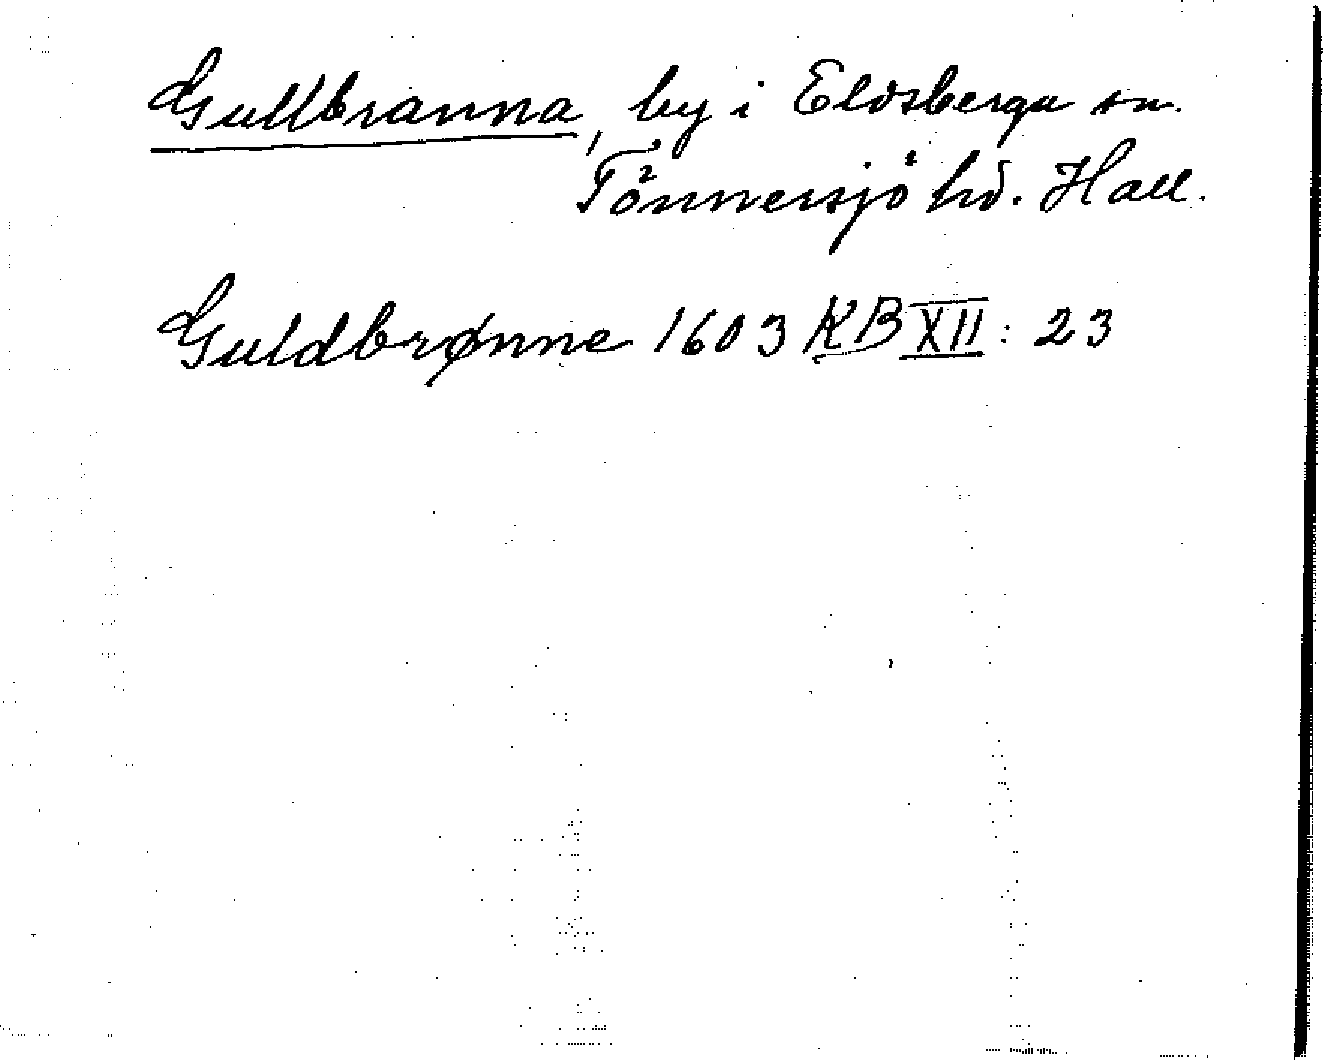 Gullbranna, by i Eldsberga sn.
Tönnersjö hd. Hall.
Guldbrønne 1603 KB XII: 23